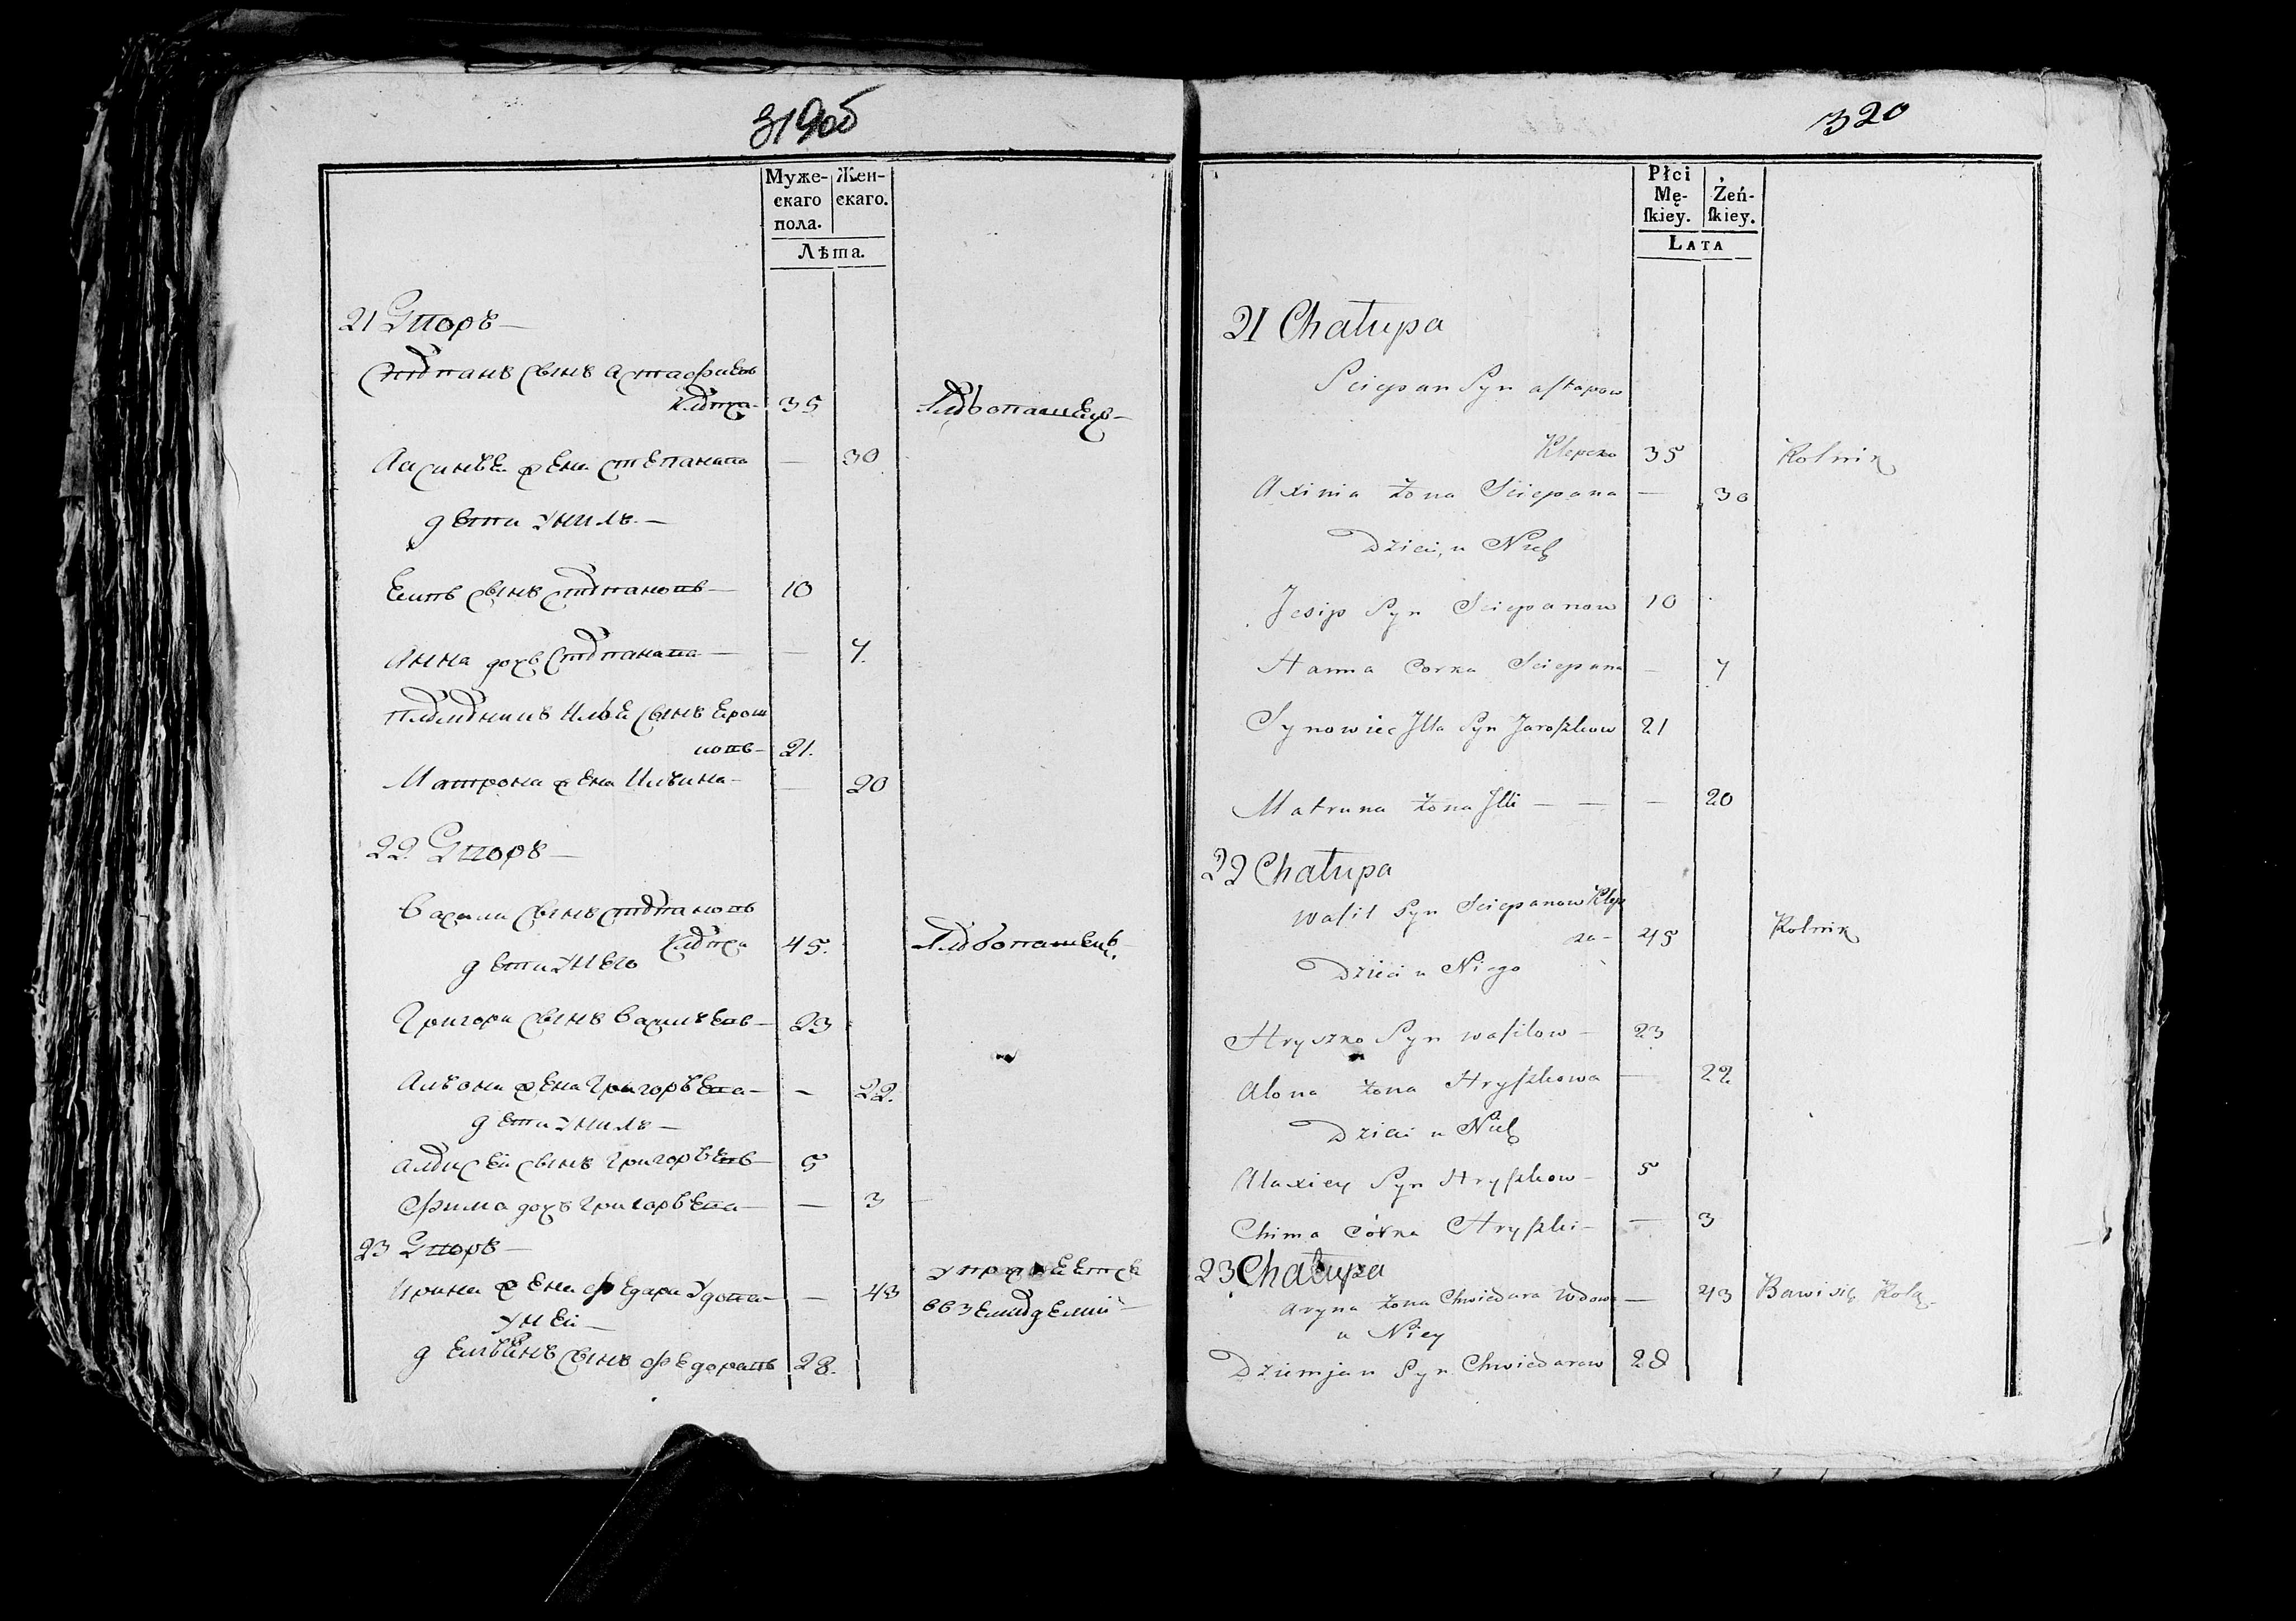 319об
Муже- Жен-
скаго скаго.
пола.
Лѣта.
21 Дворъ —
Степанъ сынъ Астафиевъ
35 Хлебопашецъ —
жена Степанова — 30
дети у нихъ —
сынъ Степановъ — 10
Анна дочь Степанова — — 7.
Племенникъ Илья сынъ Ерош
ковъ — 21.
Матрона жена Ильина — — 20
22. Дворъ —
Васили сынъ Степановъ
45. Хлебопашецъ.
дети у него
Григори сынъ Васильевъ — 23
Альона жена Григорьева — — 22.
дети у нихъ —
Алексей сынъ Григорьевъ — 5
Фима дочь Григорьева — — 3
23 Дворъ —
Ирина жена Федара удова — — 43
у ней —
Демьенъ сынъ Федоравъ 28.
320
Płci Żeń-
Mę- ſkiey.
ſkiey.
LATA
21 Chałupa
Sciepan Syn astapow
Klepcza 35 Rolnik
Axinia żona Sciepana — 30
Dzieci u Nich
Jesip Syn Sciepanow 10
Hanna Corka Sciepana — 7
Synowiec Illa Syn Jaroszkow 21
Matruna żona Illi — — — 20
22 Chałupa
Wasil Syn Sciepanow Klep
cza — 45 Rolnik
Dzieci u Niego
Hryszko Syn wasilow — 23
Alona żona Hryszkowa — 22
Dzieci u Nich
Alaxiey Syn Hryszkow — 5
Chima córka Hryszki — — 3
23 Chałupa
Aryna żona Chwiedora Wdowa — 43 Bawi się Rolą —
u Niey
Dziemjan Syn Chwiedorow 28